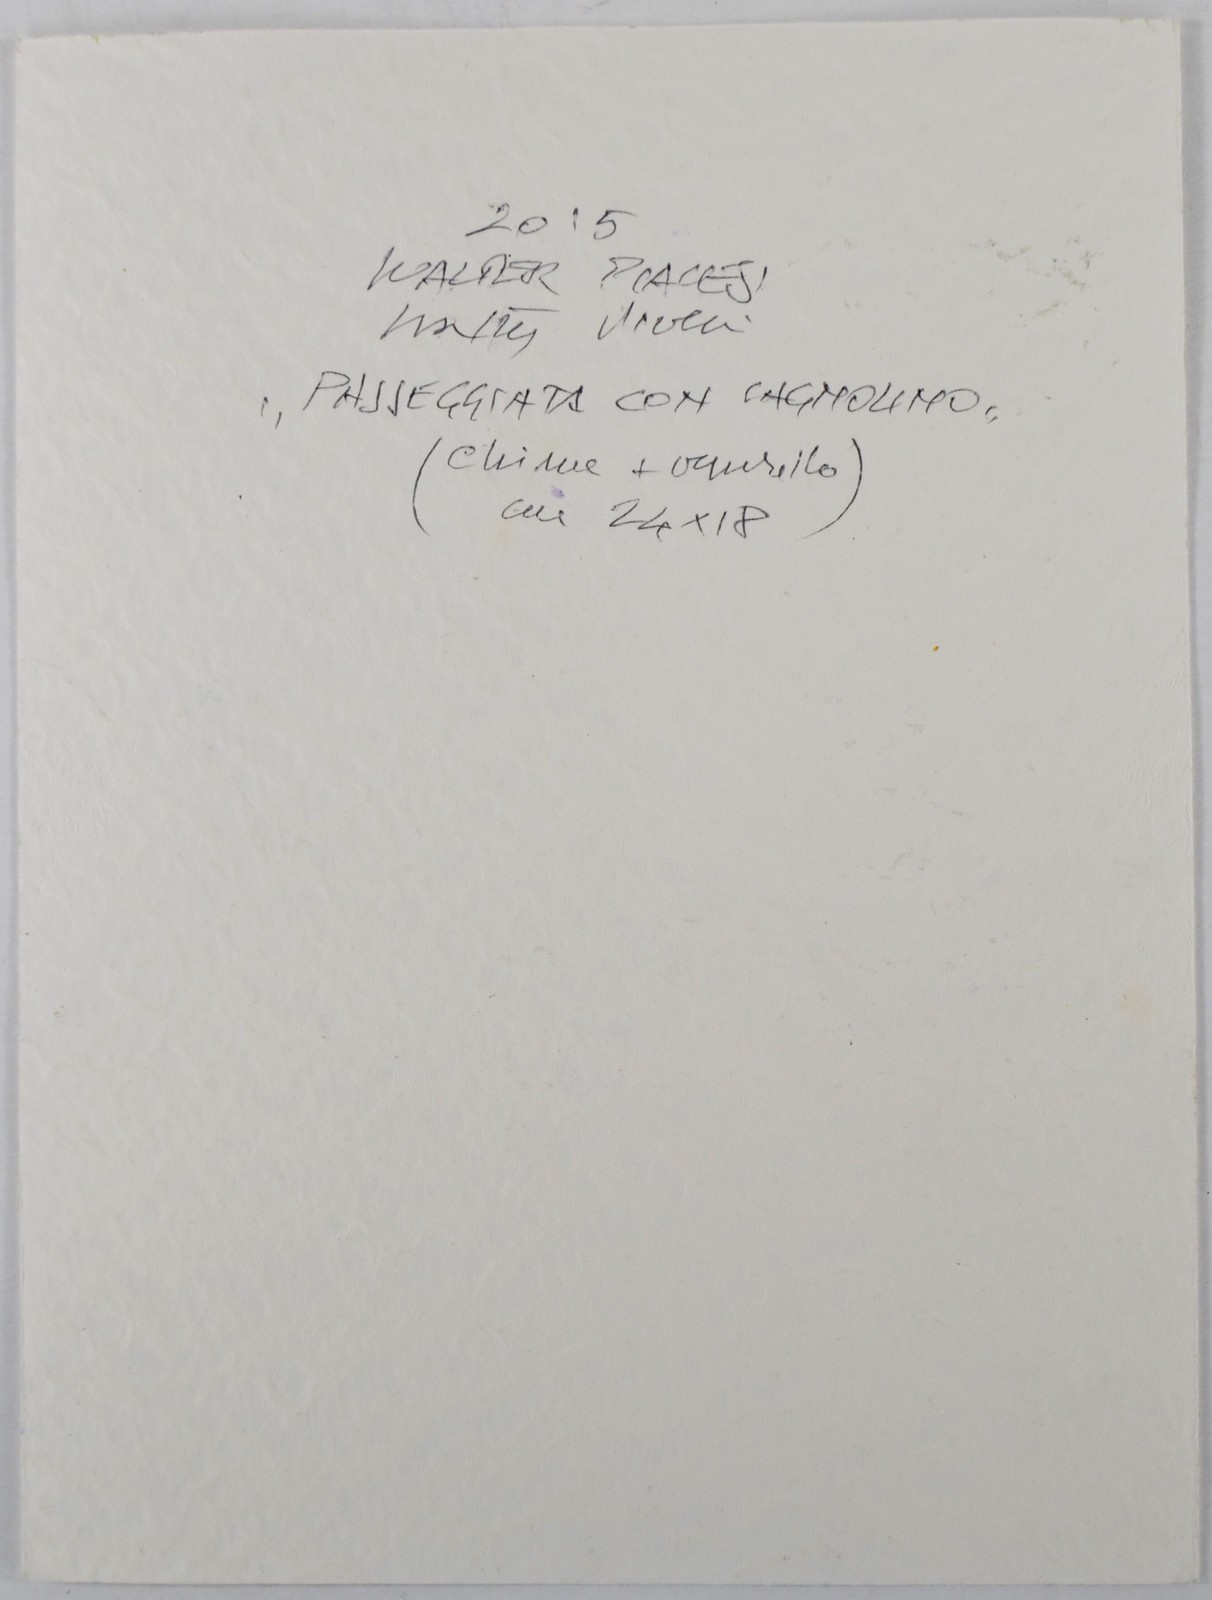 2015
WALTER PIACESI
Walter Piacesi
"PASSEGGIATA CON CAGNOLINO"
(china + acquerello)
cm 24x18